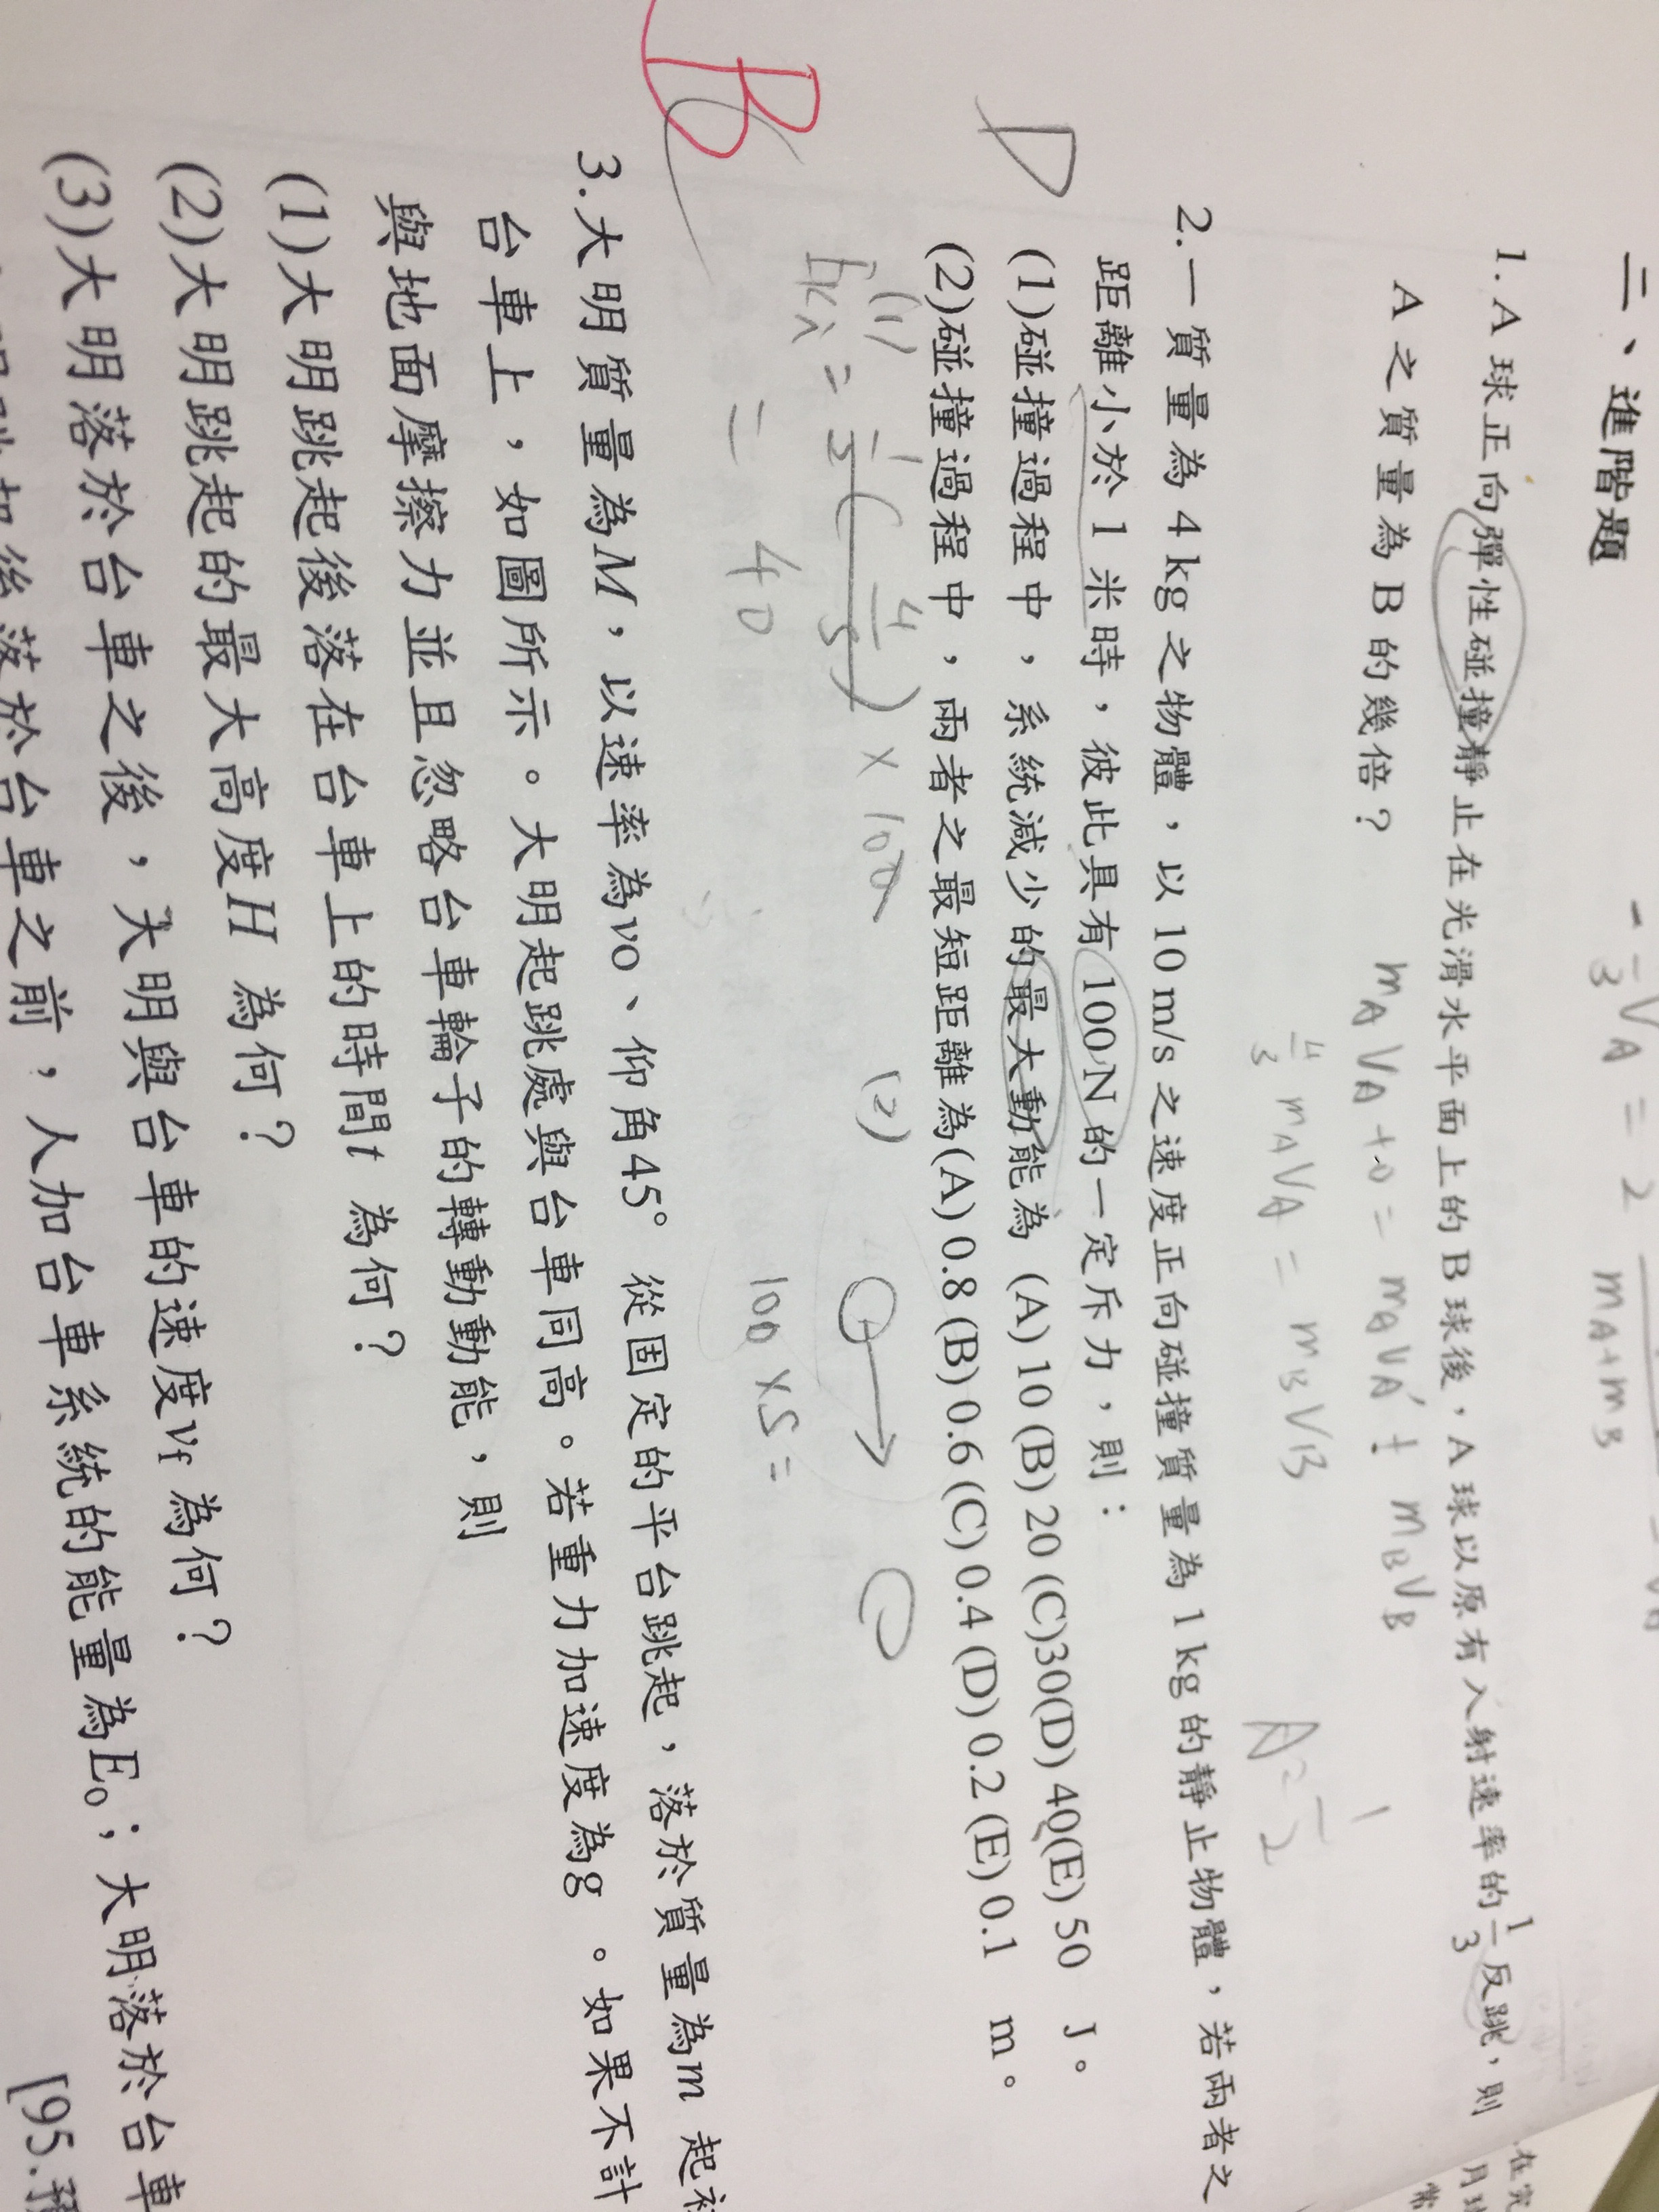 二、進階題
-1/3 VA = 2
mA+mB
1. A 球正向彈性碰撞靜止在光滑水平面上的 B 球後，A 球以原有入射速率的 1/3 反跳，則
A 之質量為 B 的幾倍？
mAVA+0 = mAVA' + mBVB
4/3 mAVA = mBVB
A = 1/2
2. 一質量為 4 kg 之物體，以 10 m/s 之速度正向碰撞質量為 1 kg 的靜止物體，若兩者之
距離小於 1 米時，彼此具有 100 N 的一定斥力，則：
D
(1)碰撞過程中，系統減少的最大動能為 (A) 10 (B) 20 (C)30(D) 40(E) 50 J。
(2)碰撞過程中，兩者之最短距離為(A) 0.8 (B) 0.6 (C) 0.4 (D) 0.2 (E) 0.1 m。
(1)
= 1/2 ( 4/5 ) × 100
= 40
(2)
100 × S =
B
3.大明質量為M，以速率為v0、仰角45° 從固定的平台跳起，落於質量為m 起
台車上，如圖所示。大明起跳處與台車同高。若重力加速度為g 。如果不計
與地面摩擦力並且忽略台車輪子的轉動動能，則
(1)大明跳起後落在台車上的時間t 為何？
(2)大明跳起的最大高度H 為何？
(3)大明落於台車之後，大明與台車的速度vf 為何？
後落於台車之前，人加台車系統的能量為E0；大明落於台車
[95.